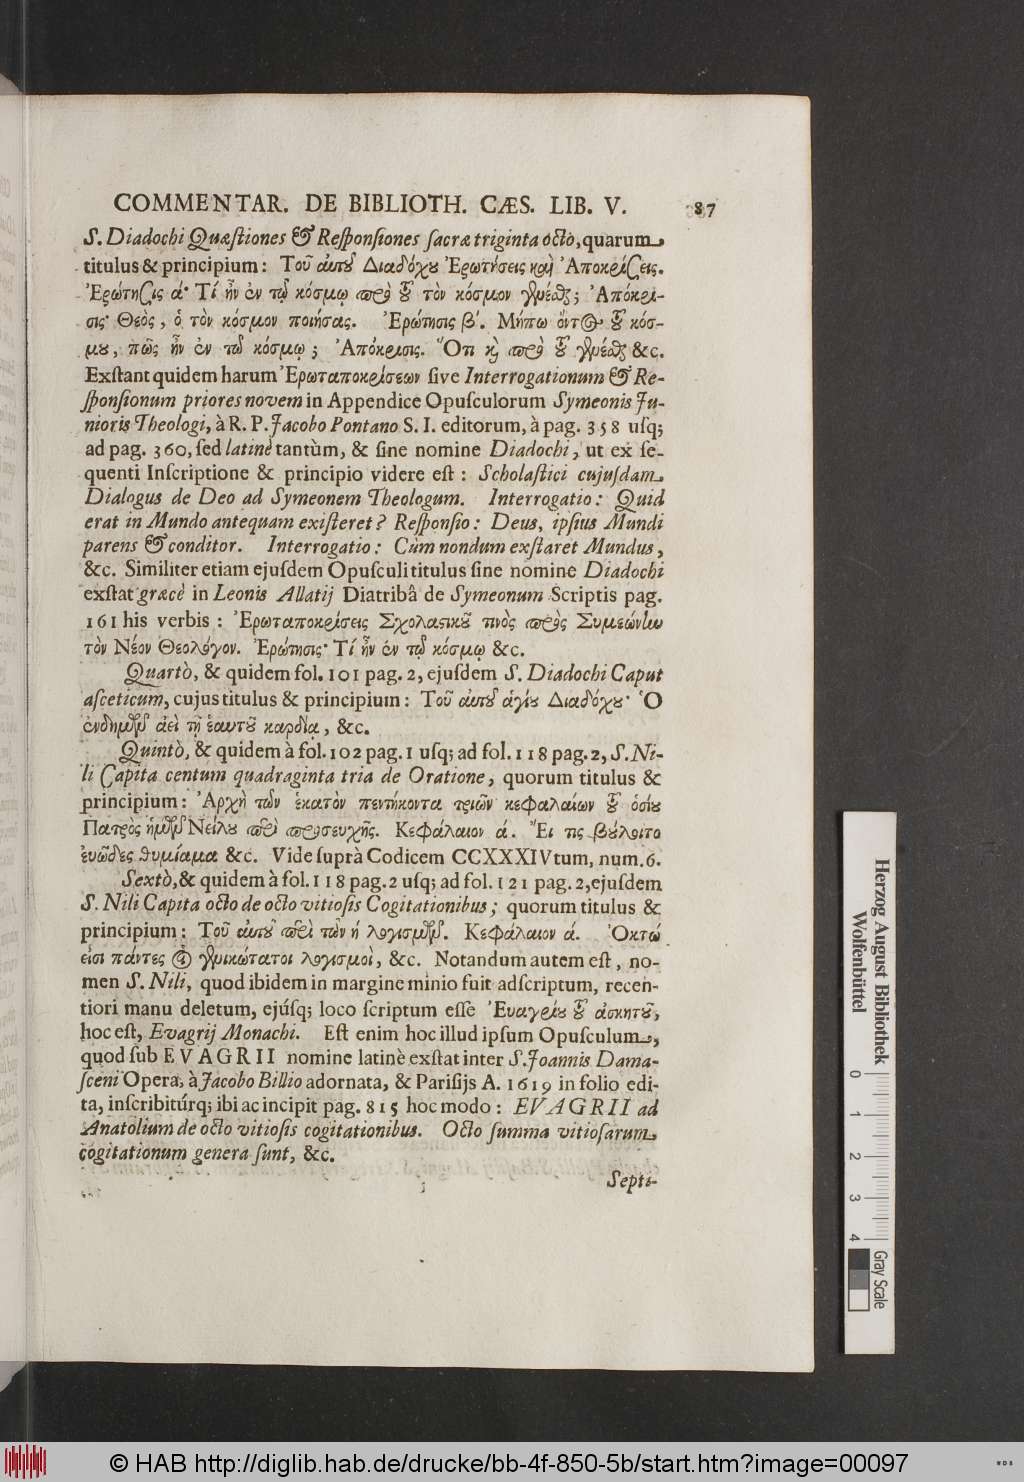 COMMENTAR. DE BIBLIOTH. CÆS. LIB. V. 87
S. Diadochi Quæſtiones & Reſponſiones ſacræ triginta octò, quarum
titulus & principium: Τοῦ αὐτοῦ Διαδόχου Ἐρωτήσεις καὶ Ἀποκρίσεις.
Ἐρώτησις ά· Τί ἦν ἐν τῷ κόσμῳ πρὸ τοῦ τὸν κόσμον γενέσθαι; Ἀπόκρι-
σις· Θεὸς, ὁ τὸν κόσμον ποιήσας. Ἐρώτησις β΄. Μήπω ὄντος τοῦ κόσ-
μου, πῶς ἦν ἐν τῷ κόσμῳ; Ἀπόκρισις. Ὅτι καὶ πρὸ τοῦ γενέσθαι &c.
Exſtant quidem harum Ἐρωταποκρίσεων ſive Interrogationum & Re-
ſponſionum priores novem in Appendice Opuſculorum Symeonis Ju-
nioris Theologi, à R. P. Jacobo Pontano S. I. editorum, à pag. 358 uſq;
ad pag. 360, ſed latinè tantùm, & ſine nomine Diadochi, ut ex ſe-
quenti Inſcriptione & principio videre eſt: Scholaſtici cujuſdam
Dialogus de Deo ad Symeonem Theologum. Interrogatio: Quid
erat in Mundo antequam exiſteret? Reſponſio: Deus, ipſius Mundi
parens & conditor. Interrogatio: Cùm nondum exſtaret Mundus,
&c. Similiter etiam ejuſdem Opuſculi titulus ſine nomine Diadochi
exſtat græcè in Leonis Allatij Diatribâ de Symeonum Scriptis pag.
161 his verbis: Ἐρωταποκρίσεις Σχολαστικοῦ τινὸς πρὸς Συμεώνην
τὸν Νέον Θεολόγον. Ἐρώτησις· Τί ἦν ἐν τῷ κόσμῳ &c.
Quartò, & quidem fol. 101 pag. 2, ejuſdem S. Diadochi Caput
aſceticum, cujus titulus & principium: Τοῦ αὐτοῦ ἁγίου Διαδόχου· Ὁ
ἐνδημῶν ἀεὶ τῇ ἑαυτοῦ καρδίᾳ, &c.
Quintò, & quidem à fol. 102 pag. 1 uſq; ad fol. 118 pag. 2, S. Ni-
li Capita centum quadraginta tria de Oratione, quorum titulus &
principium: Ἀρχὴ τῶν ἑκατὸν πεντήκοντα τριῶν κεφαλαίων τοῦ ὁσίου
Πατρὸς ἡμῶν Νείλου περὶ προσευχῆς. Κεφάλαιον ά. Ἔι τις βούλοιτο
ἐυῶδες θυμίαμα &c. Vide ſuprà Codicem CCXXXIVtum, num. 6.
Sextò, & quidem à fol. 118 pag. 2 uſq; ad fol. 121 pag. 2, ejuſdem
S. Nili Capita octo de octo vitioſis Cogitationibus; quorum titulus &
principium: Τοῦ αὐτοῦ περὶ τῶν ή λογισμῶν. Κεφάλαιον ά. Ὀκτώ
εἰσι πάντες οἱ γενικώτατοι λογισμοὶ, &c. Notandum autem eſt, no-
men S. Nili, quod ibidem in margine minio fuit adſcriptum, recen-
tiori manu deletum, ejúſq; loco ſcriptum eſſe Ἐυαγρίου τοῦ ἀσκητοῦ,
hoc eſt, Evagrij Monachi. Eſt enim hoc illud ipſum Opuſculum,
quod ſub EVAGRII nomine latinè exſtat inter S. Joannis Dama-
ſceni Opera, à Jacobo Billio adornata, & Pariſijs A. 1619 in folio edi-
ta, inſcribitúrq; ibi ac incipit pag. 815 hoc modo: EVAGRII ad
Anatolium de octo vitioſis cogitationibus. Octo ſumma vitioſarum
cogitationum genera ſunt, &c.
Septi-
Herzog August Bibliothek
Wolfenbüttel
0 1 2 3 4
Gray Scale
© HAB http://diglib.hab.de/drucke/bb-4f-850-5b/start.htm?image=00097